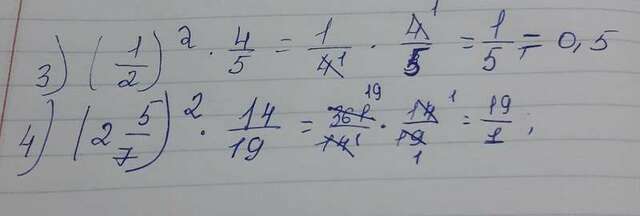 3) (1/2)² · 4/5 = 1/4̶¹ · 4̶¹/5 = 1/5 = 0,5
4) (2 5/7)² · 14/19 = 3̶6̶1̶¹⁹/1̶4̶¹ · 1̶4̶¹/1̶9̶₁ = 19/1;